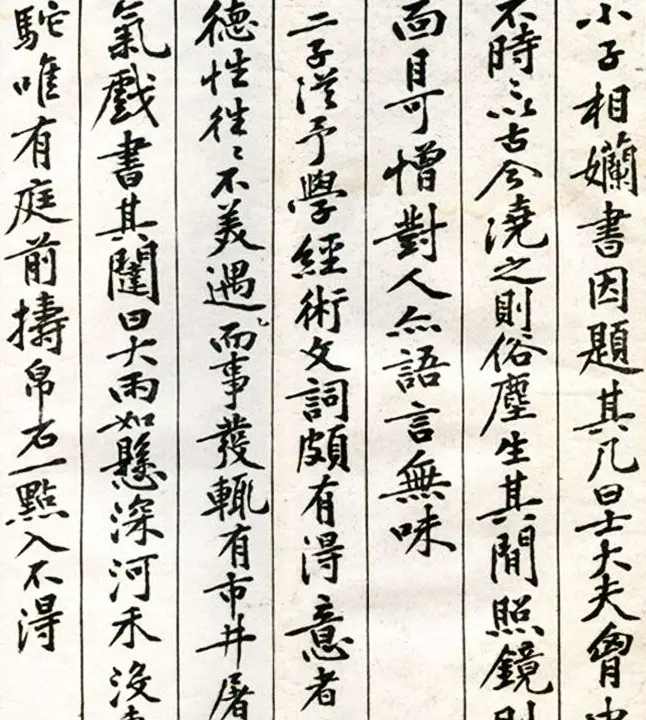 小子相嬾書因題其几曰士大夫胷中
不時〻以古今澆之則俗塵生其間照鏡則
面目可憎對人亦語言無味
二子從予學經術文詞頗有得意者
德性往〻不美遇而事發輒有市井屠
氣戲書其闥曰大雨如懸深河禾没
駝唯有庭前擣帛石一點入不得